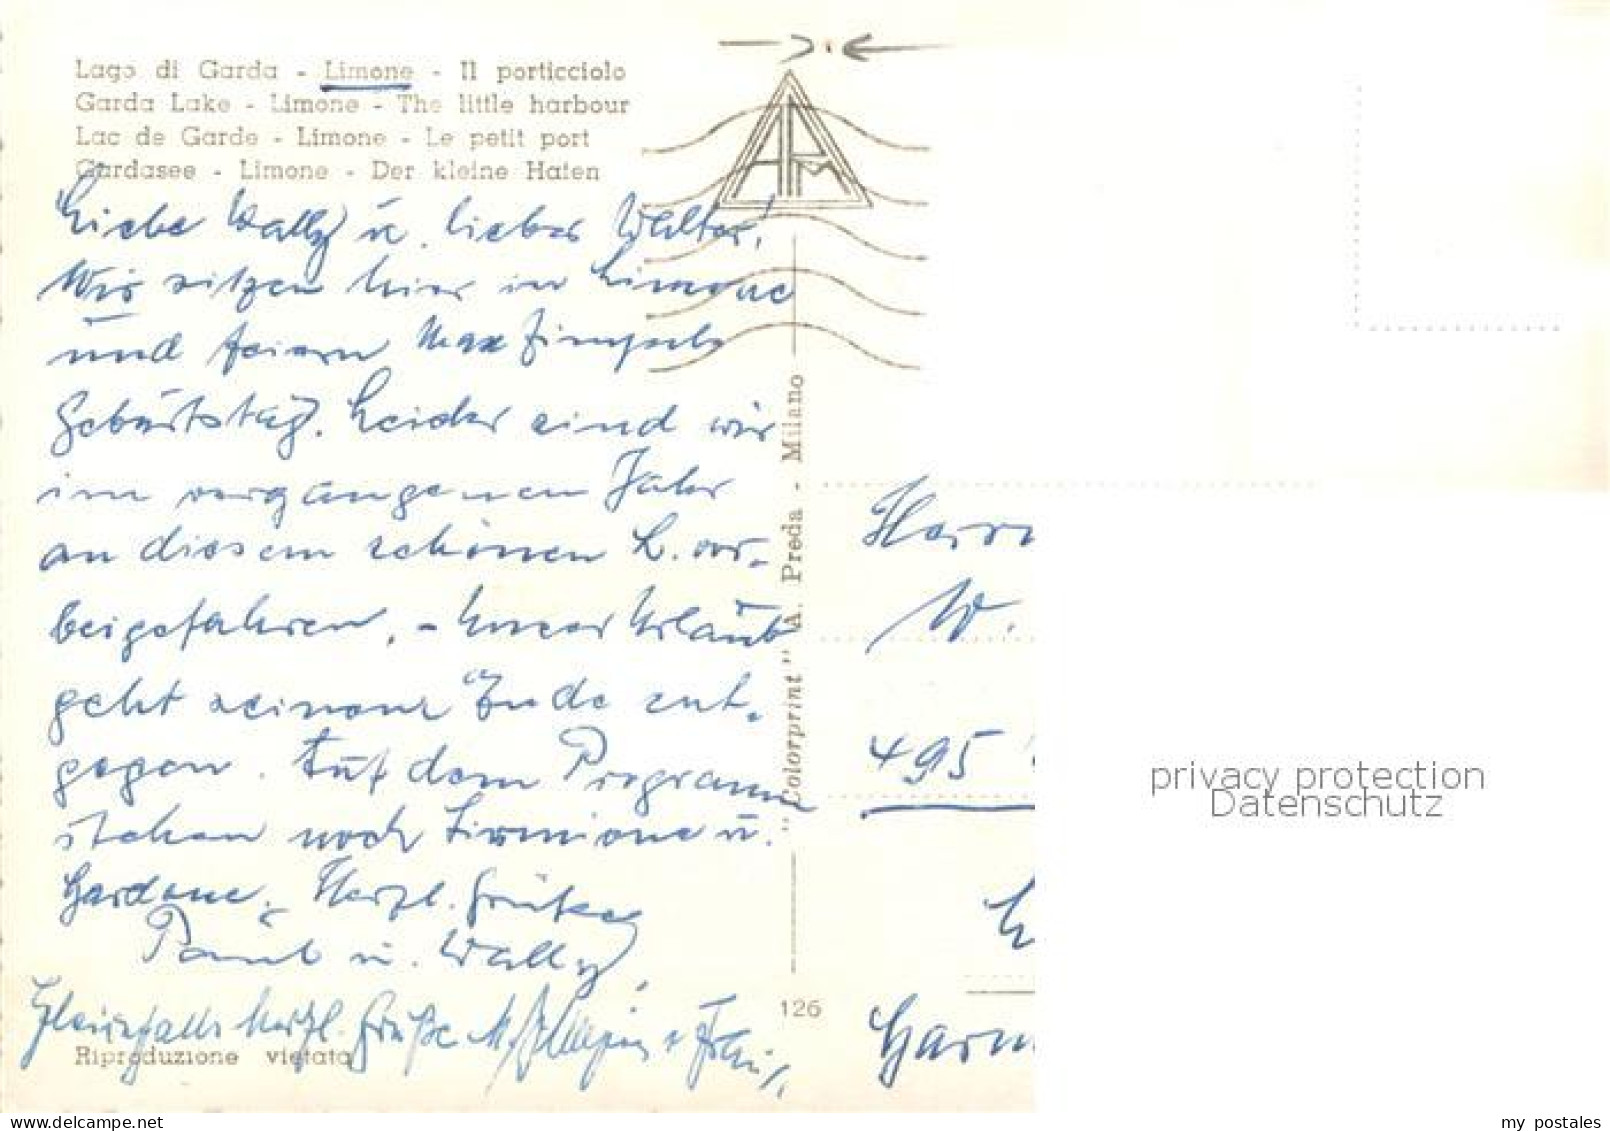 Lago di Garda - Limone - Il porticciolo
Garda Lake - Limone - The little harbour
Lac de Garde - Limone - Le petit port
Gardasee - Limone - Der kleine Hafen
Liebe Wally u. lieber Walter!
Wir sitzen hier in Limone
und feiern Max
Geburtstag. Leider sind wir
im vergangenen Jahr
an diesem schönen L. vor-
beigefahren. - Unser Urlaub
geht seinem Ende ent-
gegen. Auf dem Programm
stehen noch Sirmione u.
Gardone. Herzl. Grüße
Paul u. Wally
Gleichfalls herzl. Grüße
Riproduzione vietata
126
"Colorprint" A. Preda - Milano
Herrn
W.
495
Garm
privacy protection
Datenschutz
my postales